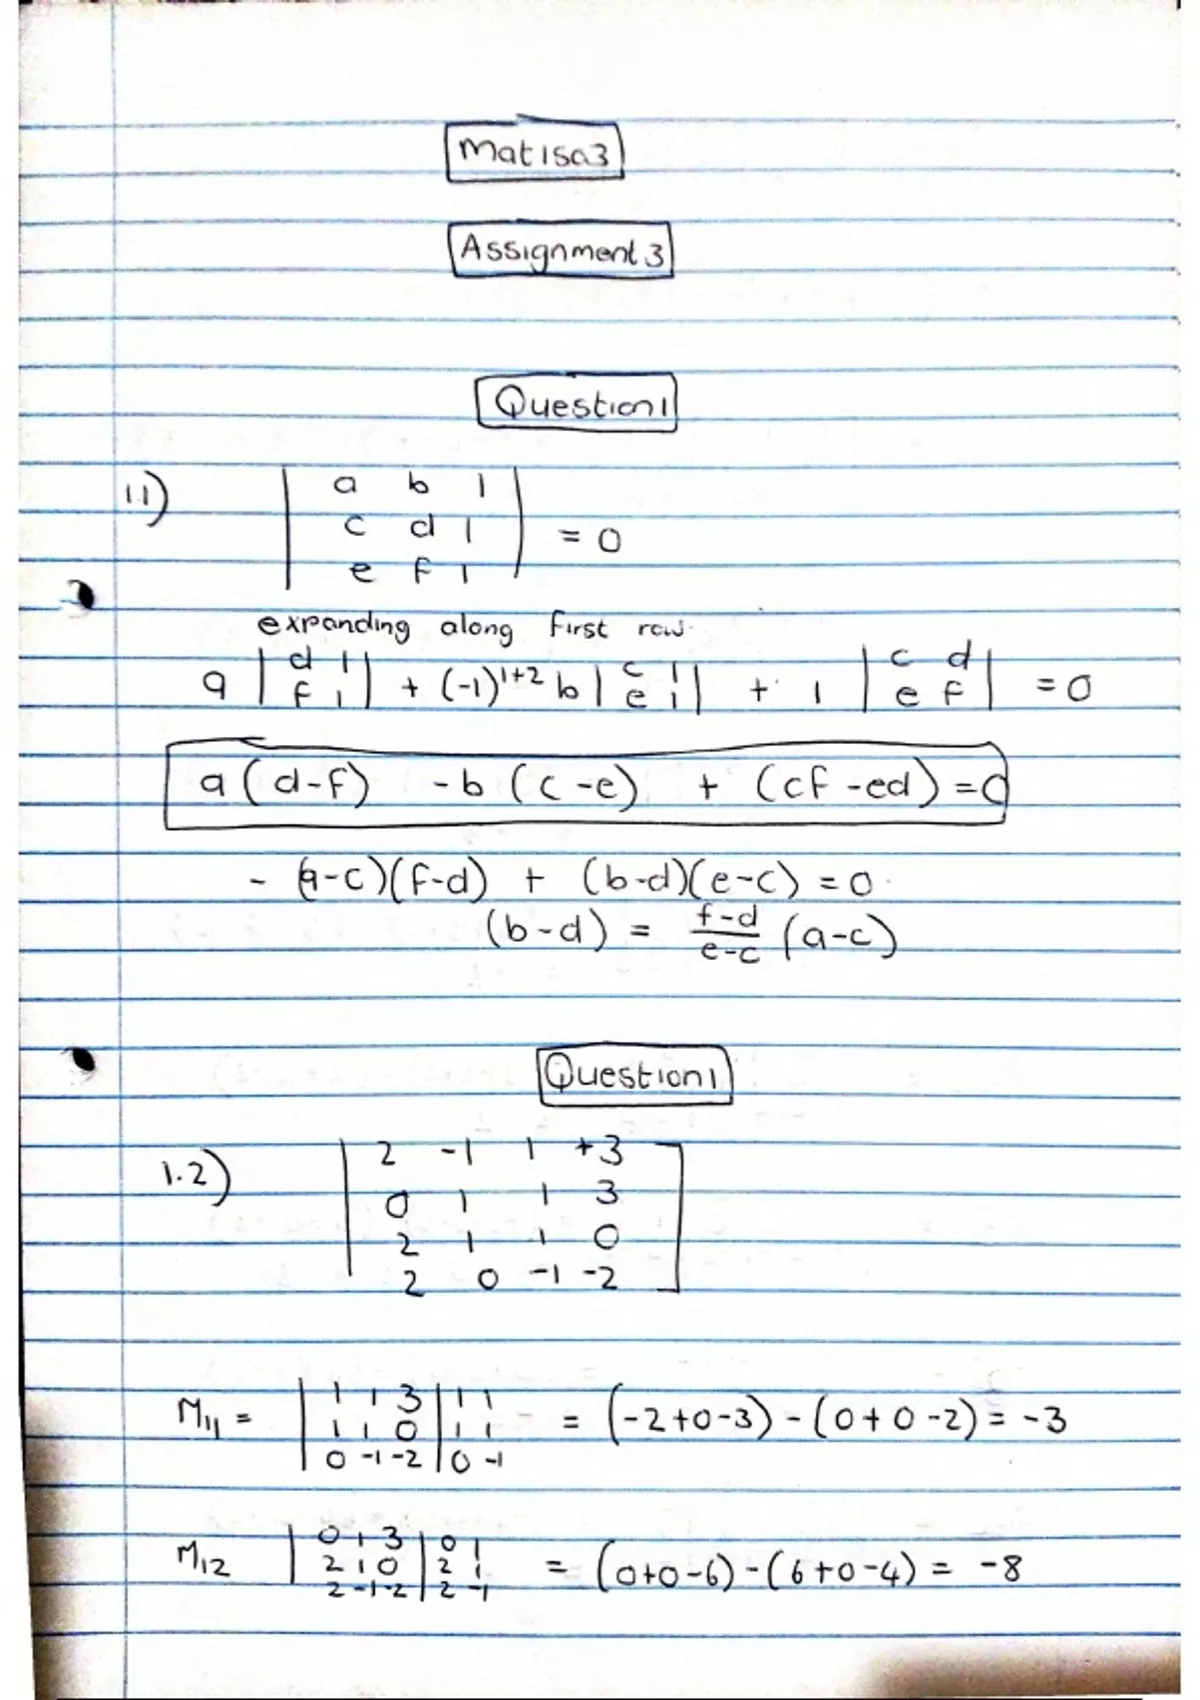 Mat1503
Assignment 3
Question 1
1.1) | a b 1 |
| c d 1 | = 0
| e f 1 |
expanding along first row.
a | d 1 | + (-1)^{1+2} b | c 1 | + 1 | c d | = 0
| f 1 | | e 1 | | e f |
a(d-f) - b(c-e) + (cf-ed) = 0
- (a-c)(f-d) + (b-d)(e-c) = 0.
(b-d) = \frac{f-d}{e-c} (a-c)
Question 1
1.2) | 2 -1 1 +3 |
0 1 1 3
2 1 1 0
2 0 -1 -2
M11 = | 1 1 3 | 1 1
| 1 1 0 | 1 1 = (-2+0-3) - (0+0-2) = -3
| 0 -1 -2 | 0 -1
M12 | 0 1 3 | 0 1
| 2 1 0 | 2 1 = (0+0-6) - (6+0-4) = -8
| 2 -1 -2 | 2 -1